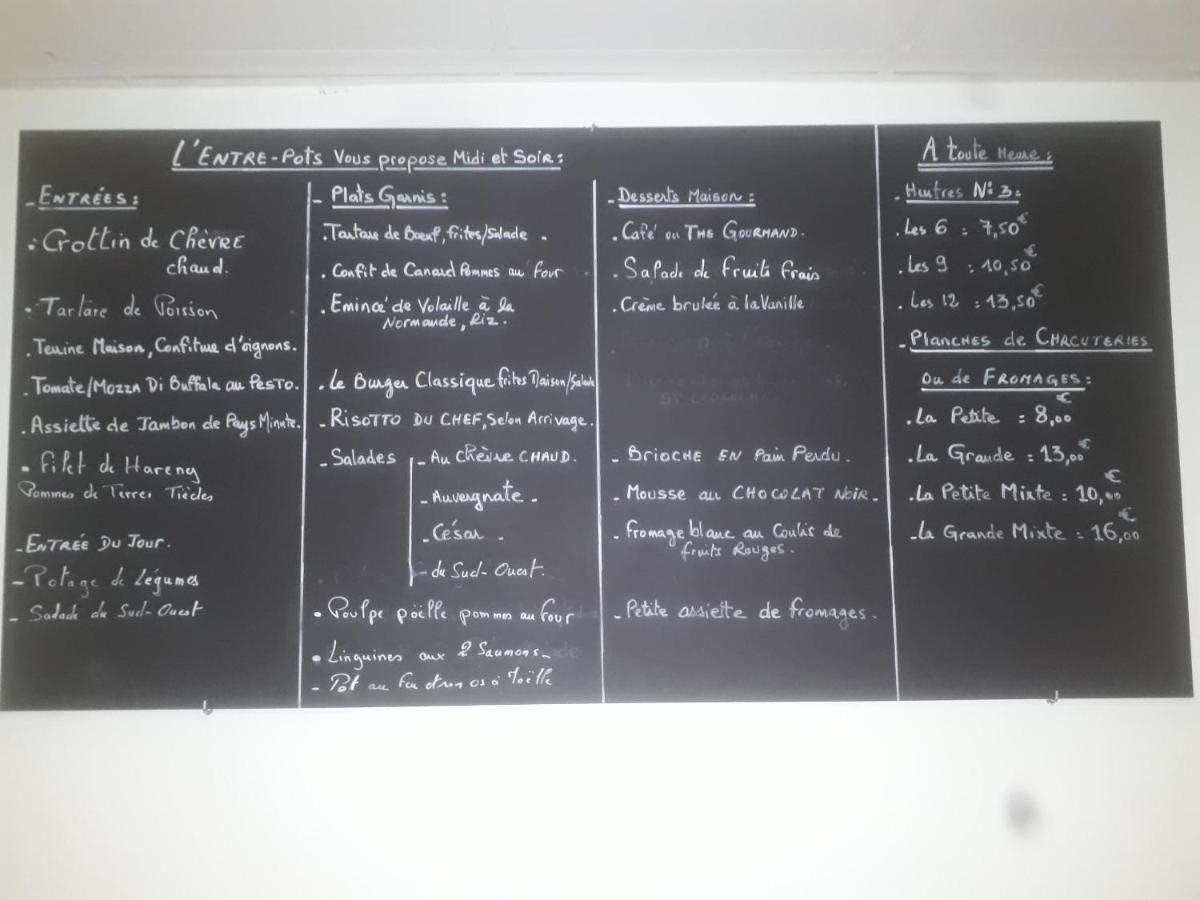 L'ENTRE-POTS Vous propose Midi et Soir:
- ENTRÉES:
. Crottin de CHÈVRE
chaud.
. Tartare de Poisson
. Terrine Maison, Confiture d'oignons.
. Tomate/Mozza Di Buffala au PESTO.
. Assiette de Jambon de Pays Minute.
. Filet de Hareng
Pommes de Terres Tièdes
- ENTRÉE DU JOUR.
- Potage de Légumes
- Salade du Sud-Ouest
- Plats Garnis:
. Tartare de Boeuf, frites/Salade.
. Confit de Canard Pommes au four
. Emincé de Volaille à la
Normande, Riz.
. Le Burger Classique frites Maison/Salade
. RISOTTO DU CHEF, Selon Arrivage.
- Salades - Au Chèvre CHAUD.
- Auvergnate.
- César.
- du Sud-Ouest.
. Poulpe pöêlle pommes au four
. Linguines aux 2 Saumons-
- Pot au feu et son os à Moëlle
- Desserts Maison:
. Café ou THE GOURMAND.
. Salade de fruits frais
. Crème brulée à la Vanille
- BRIOCHE EN Pain Perdu.
- Mousse au CHOCOLAT NOIR.
- fromage blanc au Coulis de
fruits Rouges.
- Petite assiette de fromages.
A toute Heure:
- Huitres N°3:
. Les 6 : 7,50€
. Les 9 : 10,50€
. Les 12 : 13,50€
- PLANCHES de CHACUTERIES
Ou de FROMAGES:
. La Petite : 8,00€
. La Grande : 13,00€
. La Petite Mixte : 10,00€
- La Grande Mixte : 16,00€